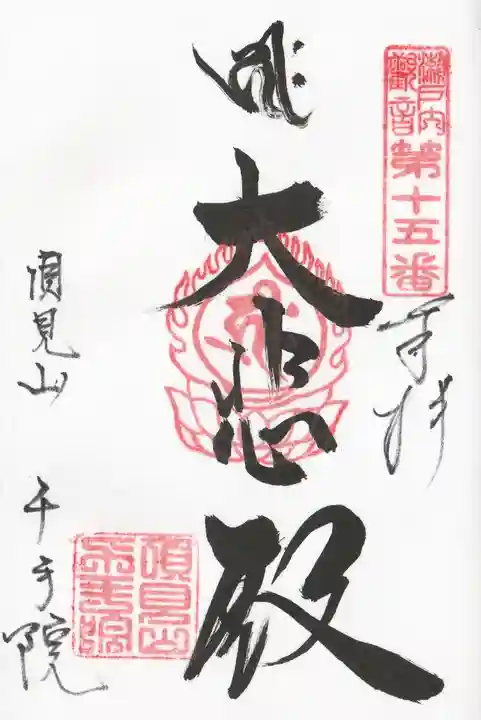 瀬戸内
觀音
第十五番
奉拝
大悲殿
須見山　千手院
須見山
千手院